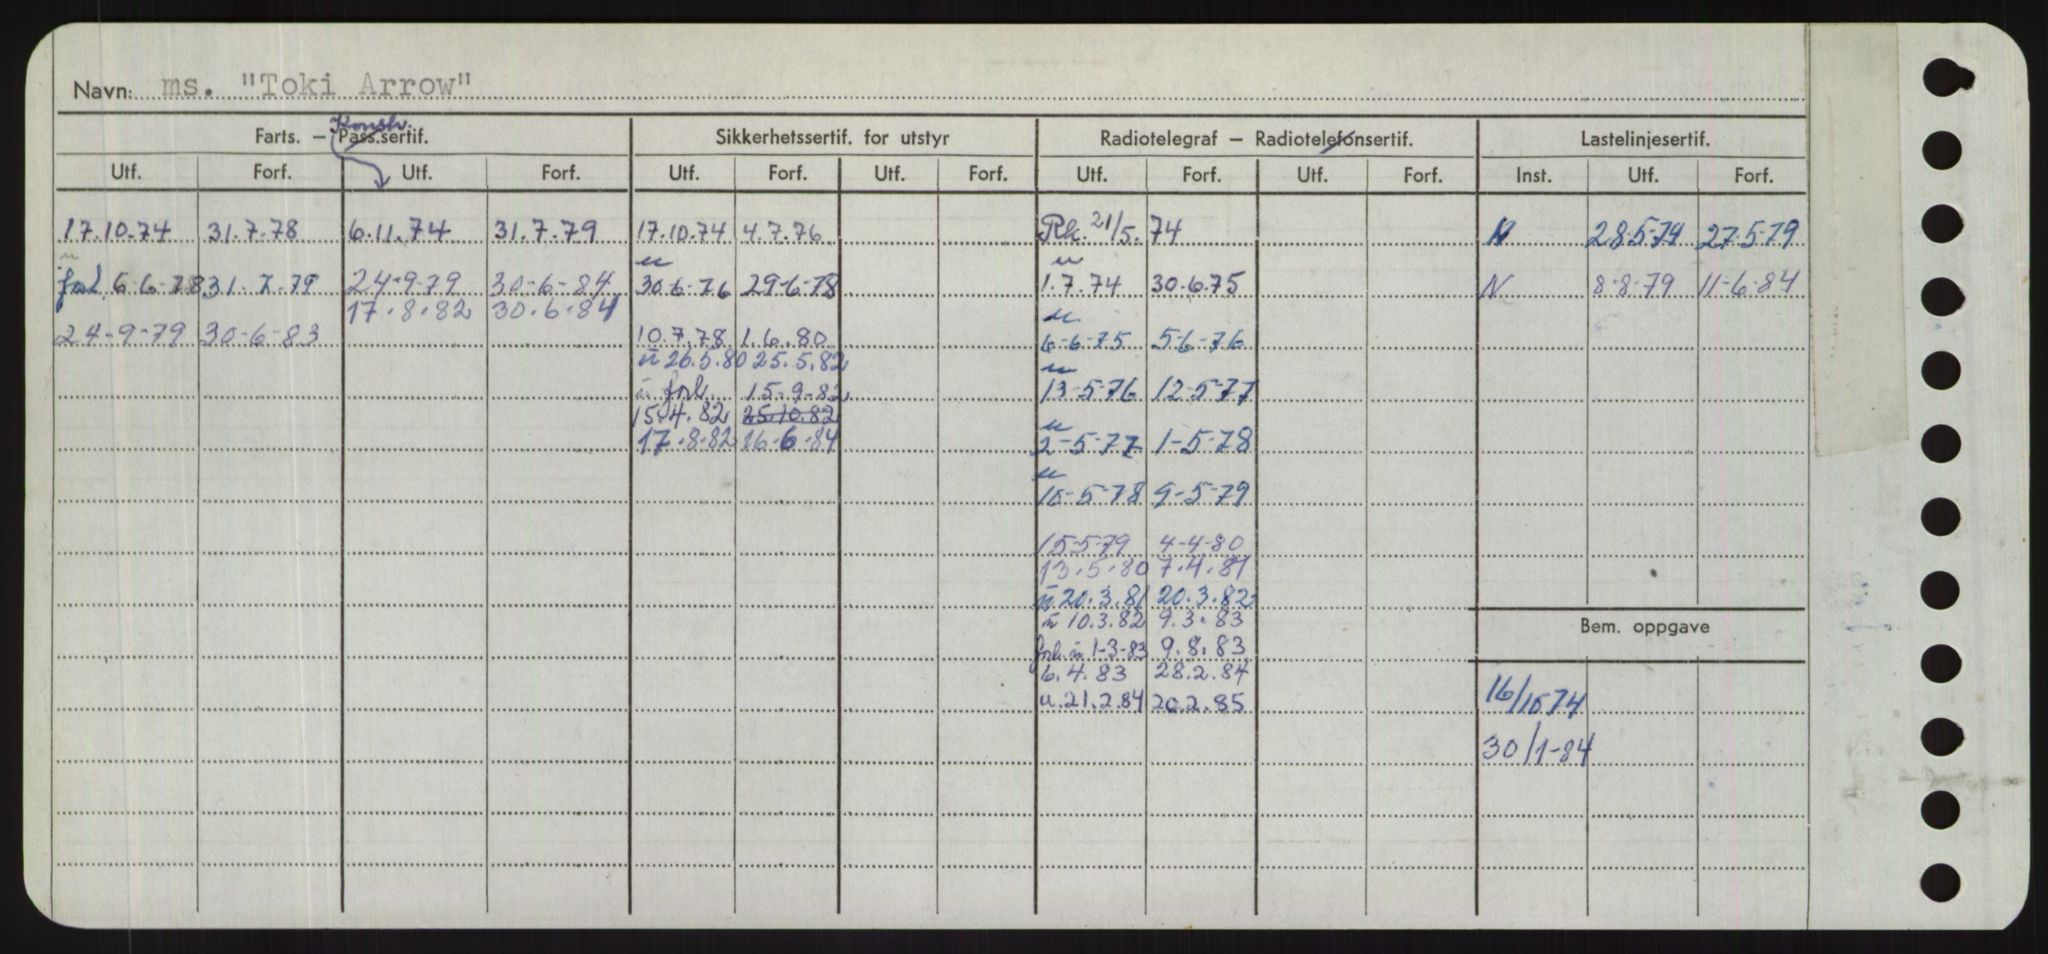 Navn: ms. "Toki Arrow"
Konstr.
Farts. — Pass.sertif. Sikkerhetssertif. for utstyr Radiotelegraf — Radiotelefonsertif. Lastelinjesertif.
Utf. Forf. Utf. Forf. Utf. Forf. Utf. Forf. Utf. Forf. Utf. Forf. Inst. Utf. Forf.
17.10.74 31.7.78 6.11.74 31.7.79 17.10.74 4.7.76 Rk. 21/5. 74 N 28-5-74 27-5-79
u u u
forl. 6-6-78 31-7-79 24-9-79 30-6-84 30.6-76 29-6-78 1.7.74 30.6.75 N 8-8-79 11-6-84
17.8.82 30.6.84 u
24-9-79 30-6-83 10.7.78 1.6.80 6-6-75 5-6-76
u 26.5.80 25.5.82 u
u forl. 15-9-82 13-5-76 12-5-77
15.4.82 25.10.82 u
17.8-82 16-6-84 2-5-77 1-5-78
u
10-5-78 9-5-79
15-5-79 4-4-80
13.5.80 7.4.81
u 20.3.81 20.3.82
u 10.3.82 9.3.83
Bem. oppgave
forl. u 1-3-83 9.8.83
6.4.83 28.2.84
16/10 74
u.21.2.84 20.2.85
30/1-84